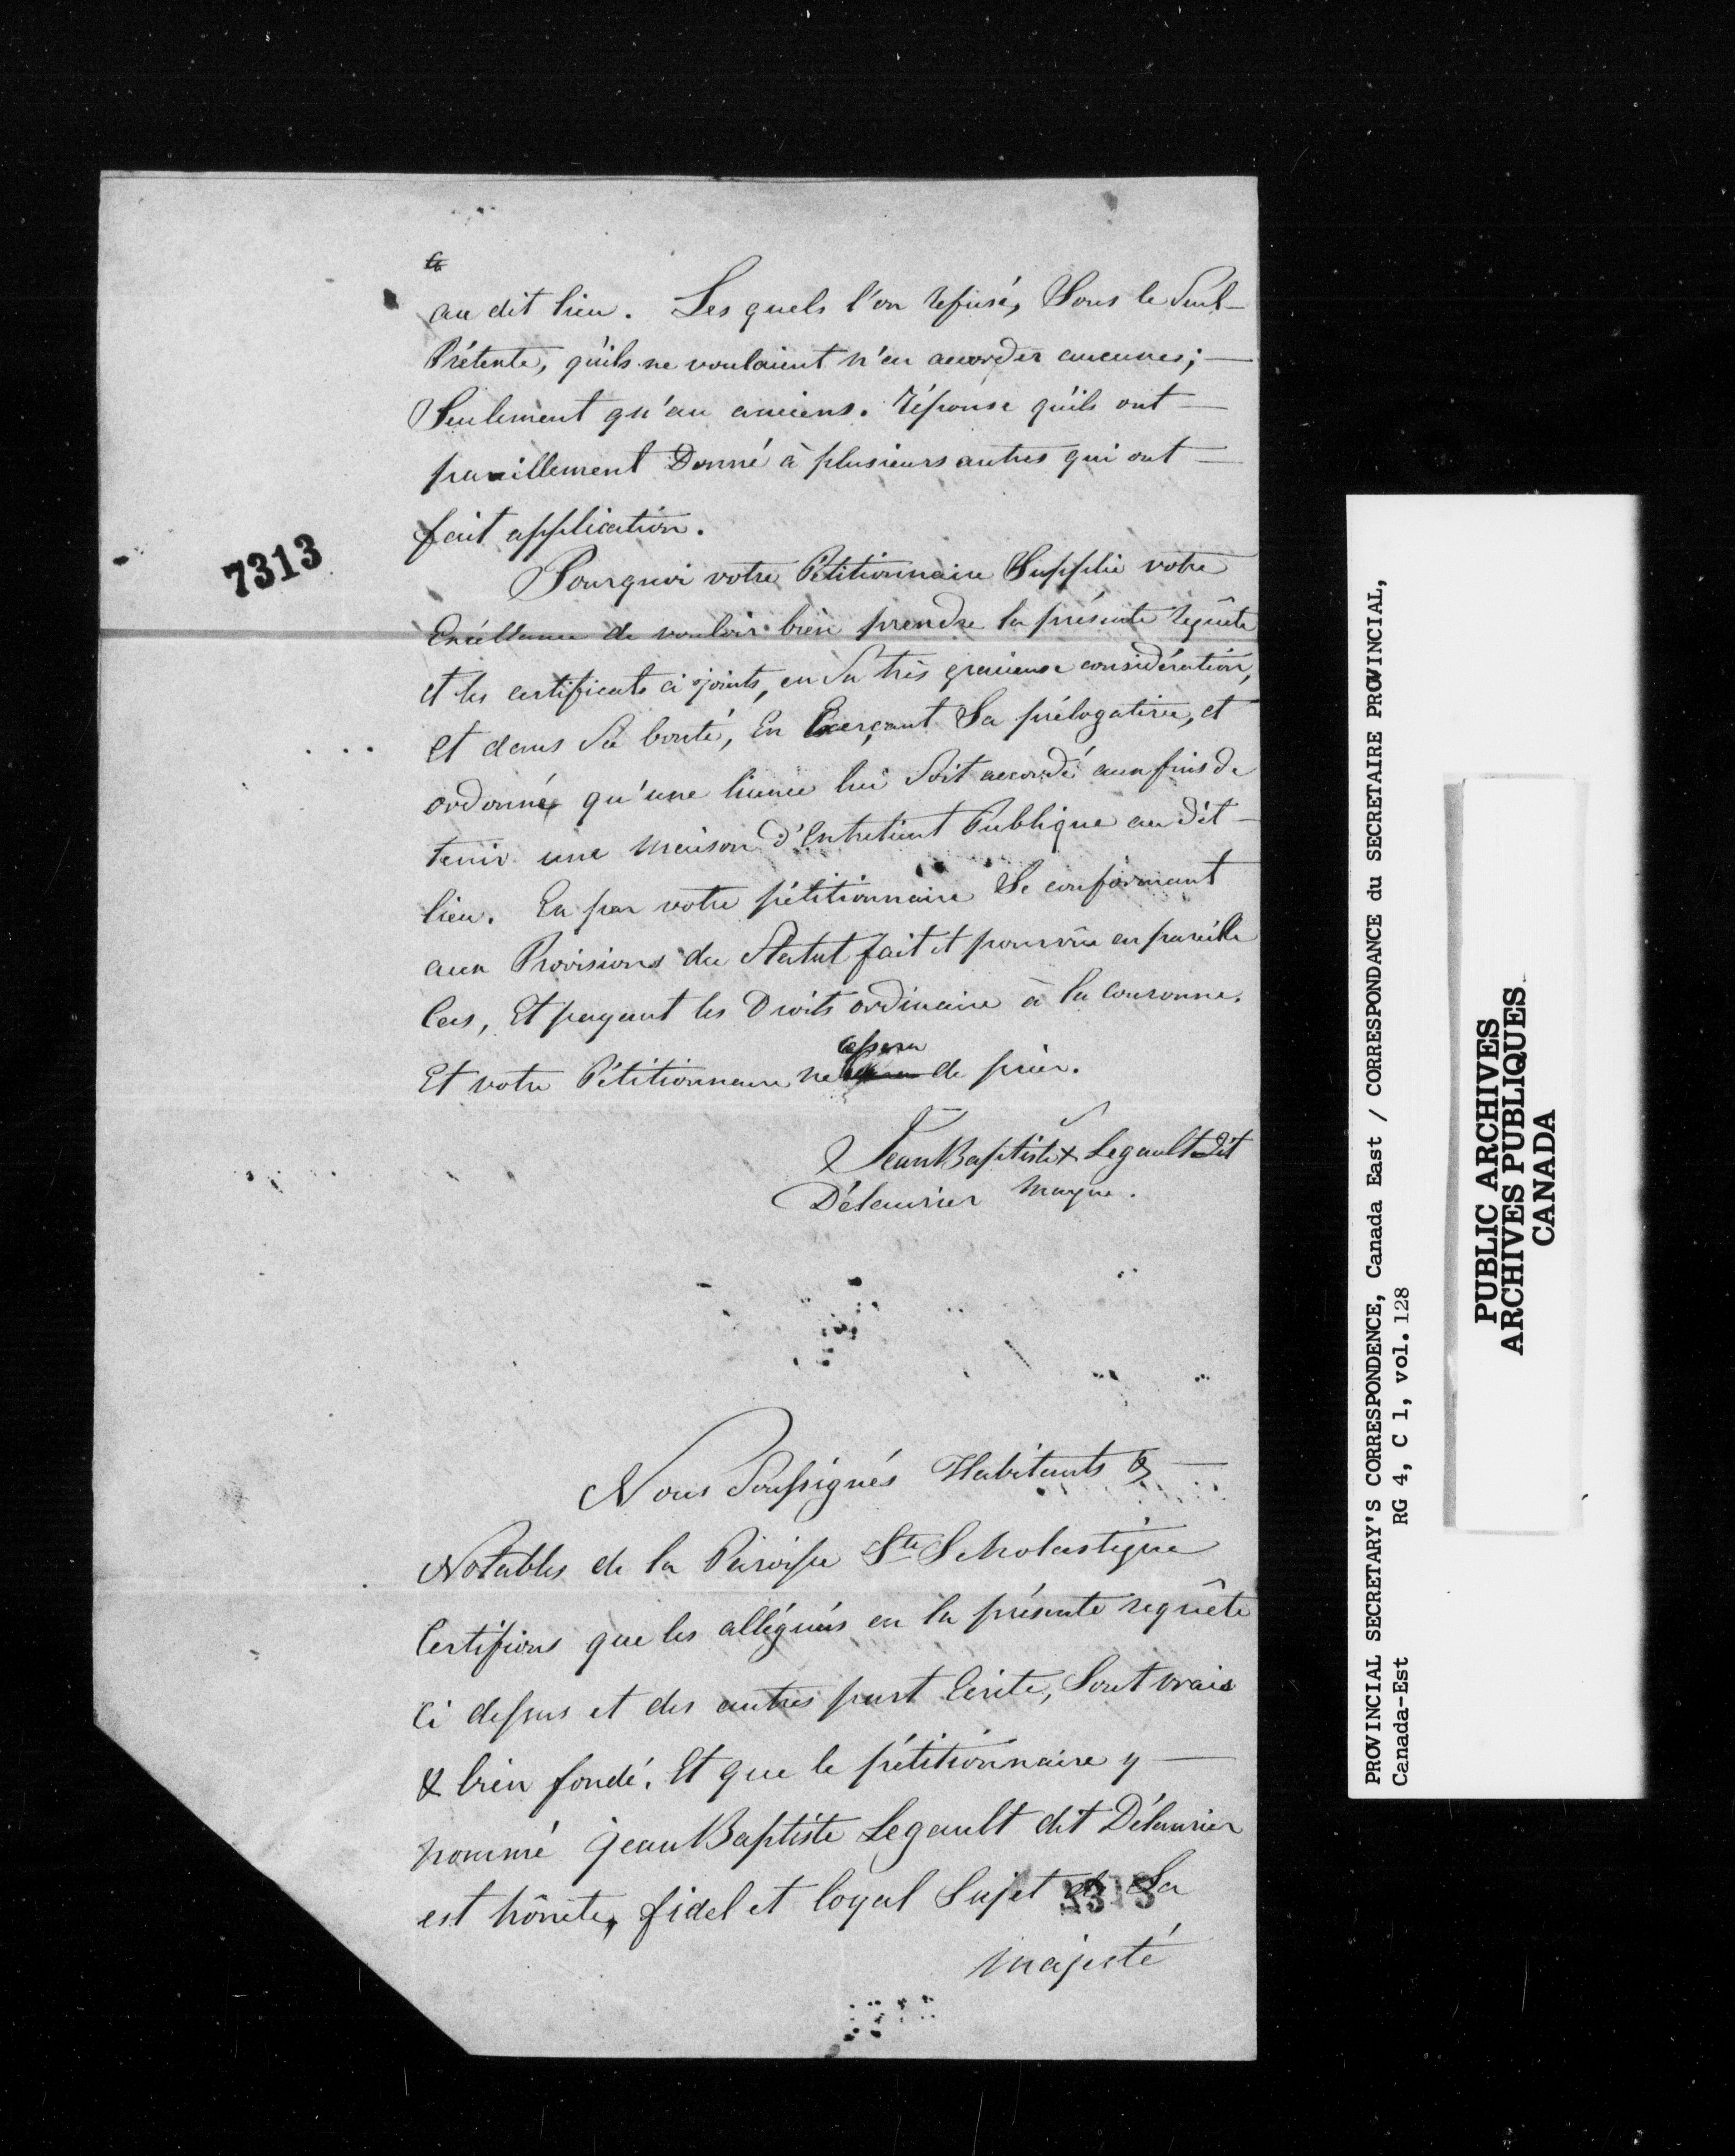 au dit lieu. Les quels l'on refusé, Sous le Seul
Prétente, qu'ils ne voulaient n'en accorder aucunes;
Seulement qu'au anciens. réponse qu'ils ont
pareillement Donné à plusieurs autres qui ont
fait application.
7313
Pourquoi votre Pétitionnaire Supplie votre
Excéllence de vouloir bien prendre la présente requête
et les certificats ci joints, en Sa très gracieuse considération,
et dans Sa bonté, En Exerçant Sa prélogative, et
ordonné qu'une licence lui Soit accordé aux fins de
tenir une maison d'Entretient Publique au dit
lieu. En par votre pétitionnaire Se conformant
aux Provisions du Statut fait et pourvûe en pareille
Cas, Et payant les Droits ordinaire à la couronne.
Et votre Pétitionnaire ne cessera de prier.
Jean Baptiste + Legault dit
Délaurier marque.
Nous Soussignés Habitants &
Notables de la Paroisse Ste Scholastique
Certifions que les allégués en la présente requête
Ci dessus et des autres part Ecrite, Sont vrais
& bien fondé. Et que le pétitionnaire y
nommé Jean Baptiste Legault dit Délaurier
est hônete, fidel et loyal Sujet de Sa
majesté
PROVINCIAL SECRETARY'S CORRESPONDENCE, Canada East / CORRESPONDANCE du SECRETAIRE PROVINCIAL,
Canada-Est RG 4, C 1, vol. 128
PUBLIC ARCHIVES
ARCHIVES PUBLIQUES
CANADA